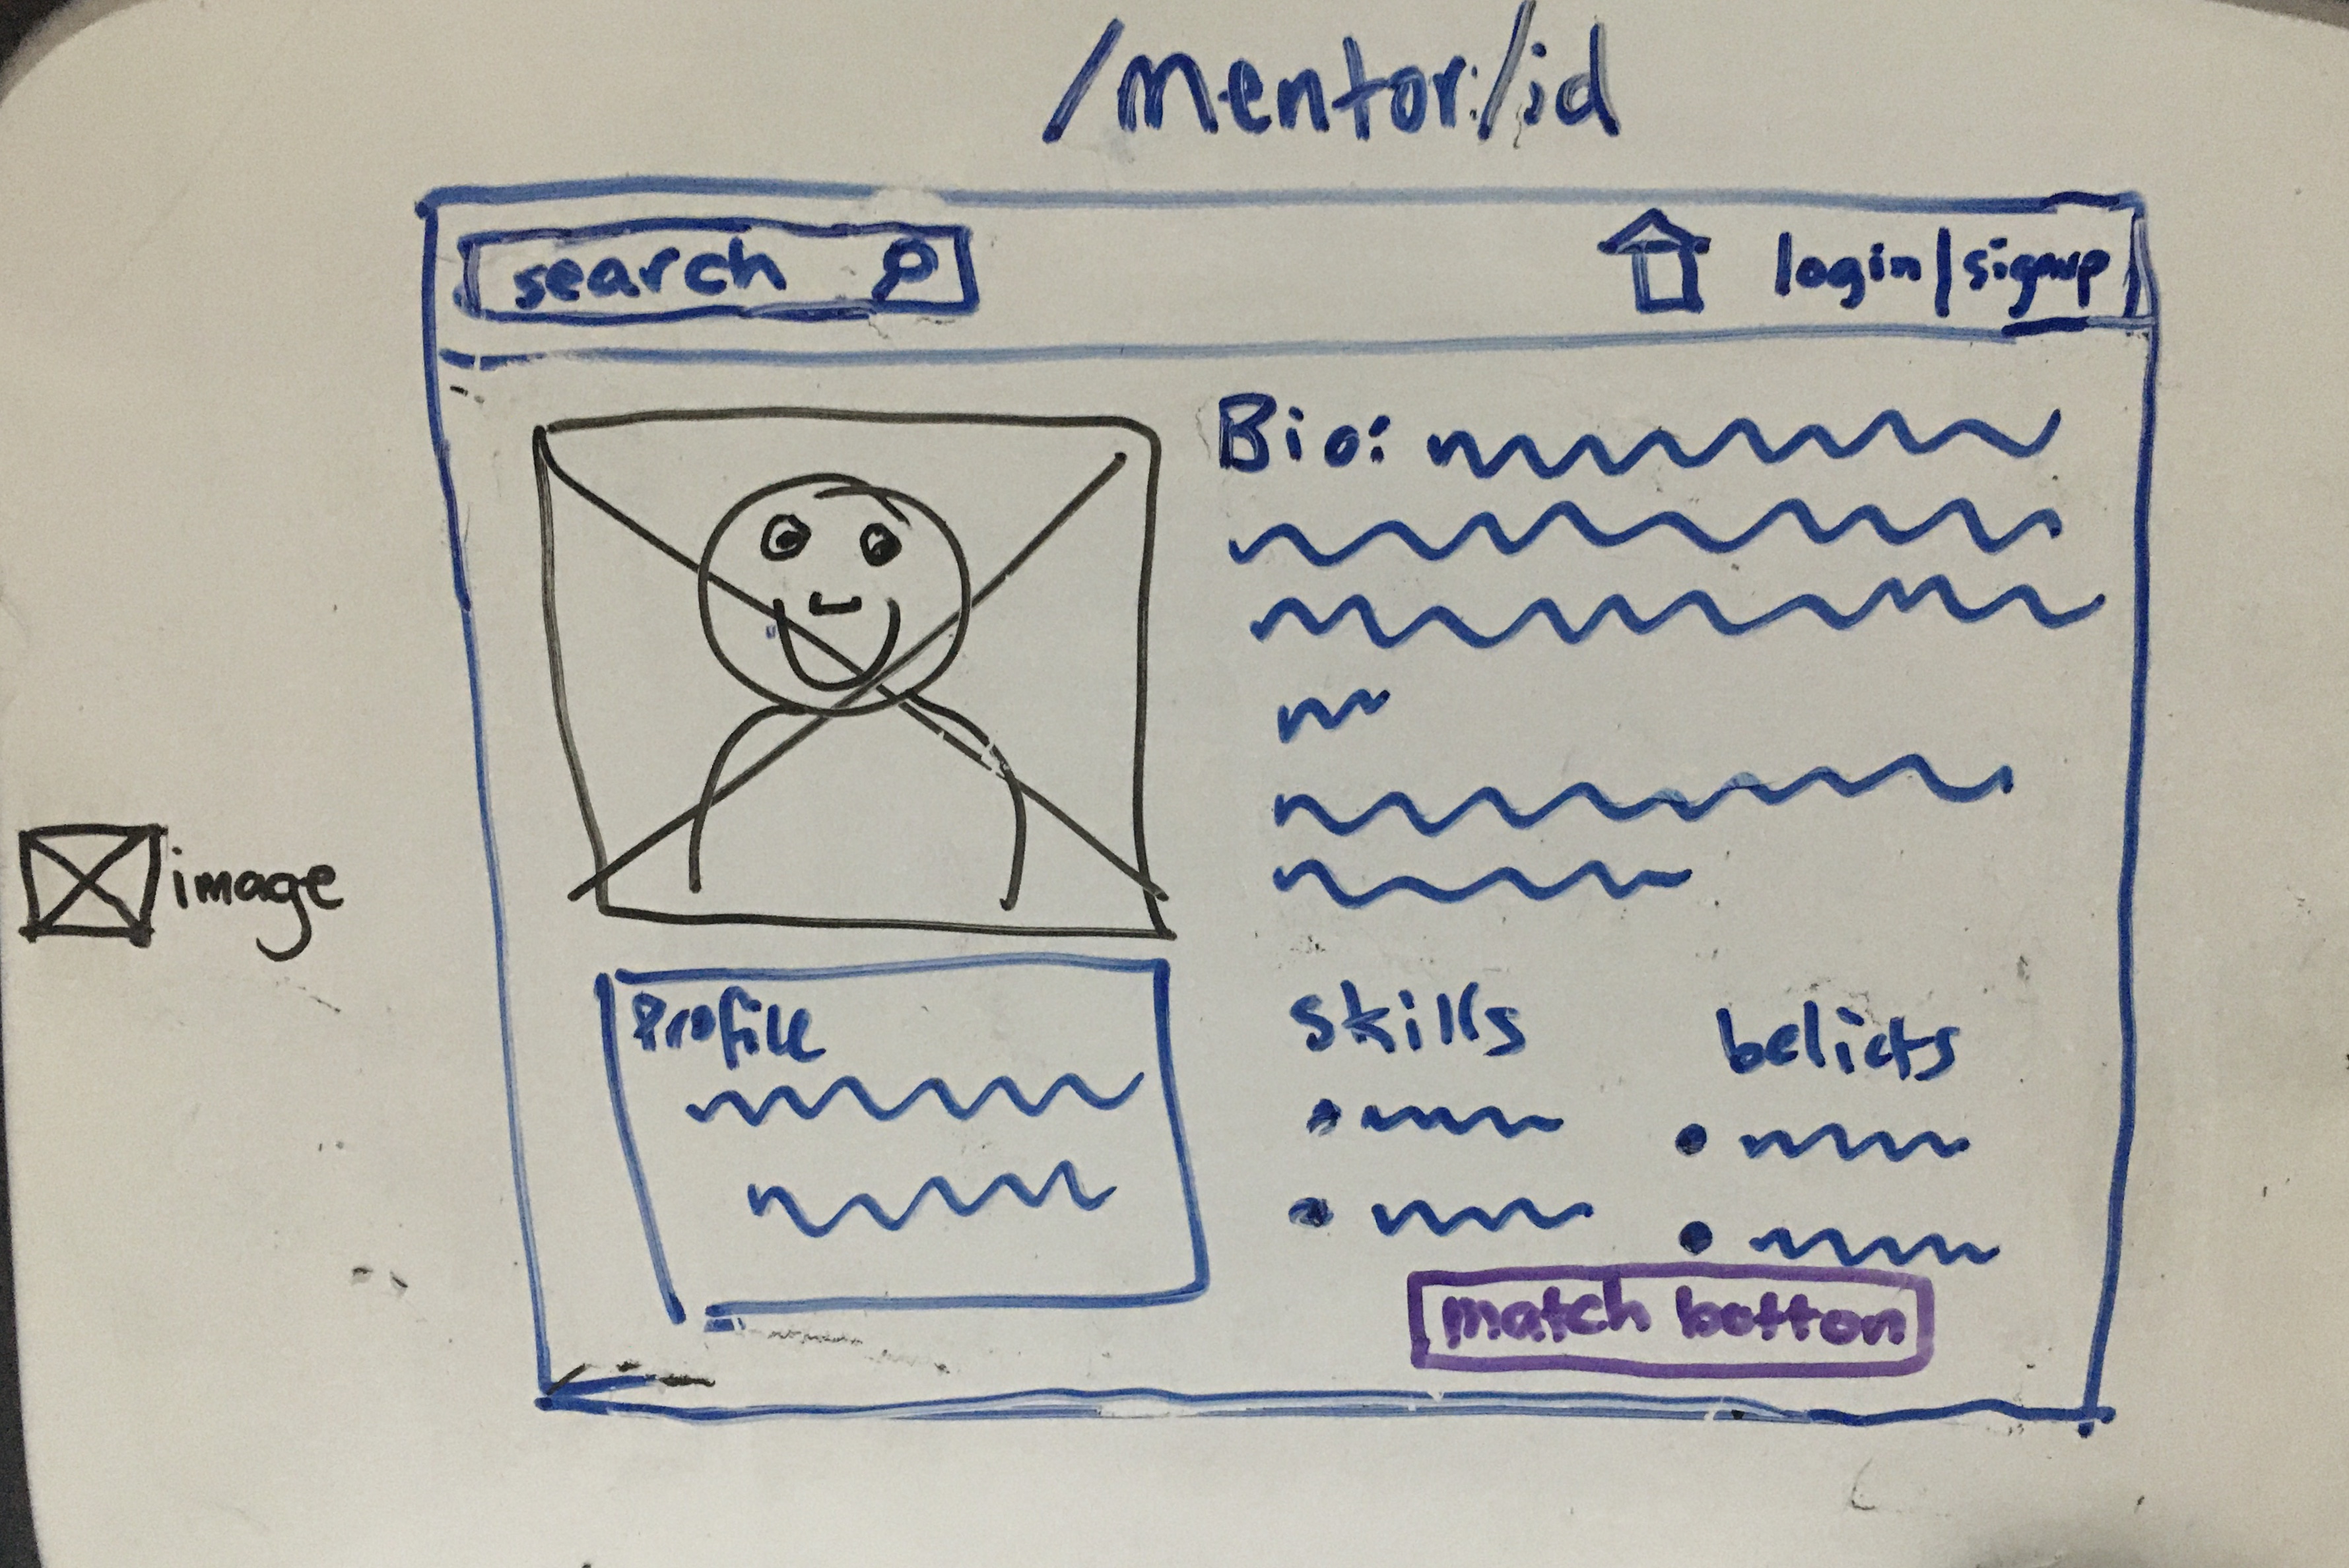 /mentor:/id
search
login/signup
Bio:
image
Profile
skills
beliefs
match button